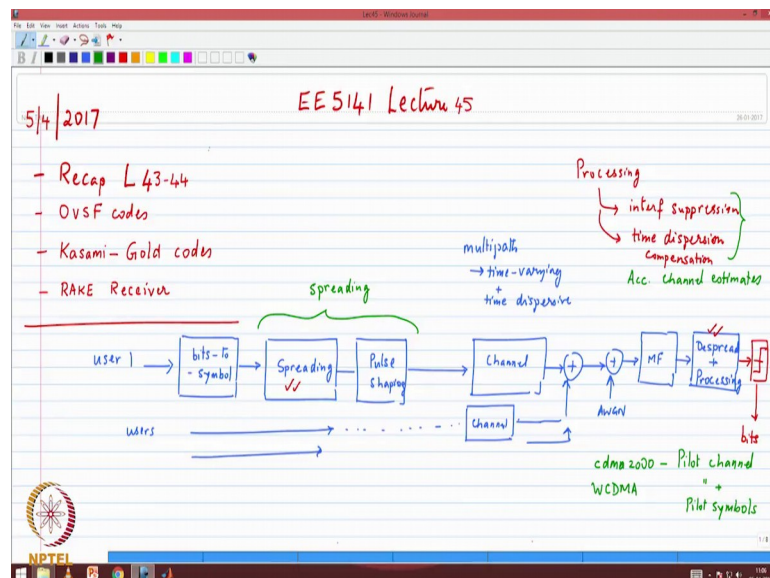 Lec45 - Windows Journal
File Edit View Insert Actions Tools Help
EE 5141 Lecture 45
5/4/2017
26-01-2017
- Recap L 43-44
- OVSF codes
- Kasami-Gold codes
- RAKE Receiver
Processing
→ interf suppression
→ time dispersion
compensation
Acc. channel estimates
multipath
→ time-varying
+
time dispersive
spreading
user 1
bits-to
-symbol
Spreading
Pulse
Shaping
Channel
+
+
MF
Despread
+
Processing
AWGN
bits
users
Channel
cdma 2000 - Pilot channel
WCDMA " +
Pilot symbols
NPTEL
1/8
11:06